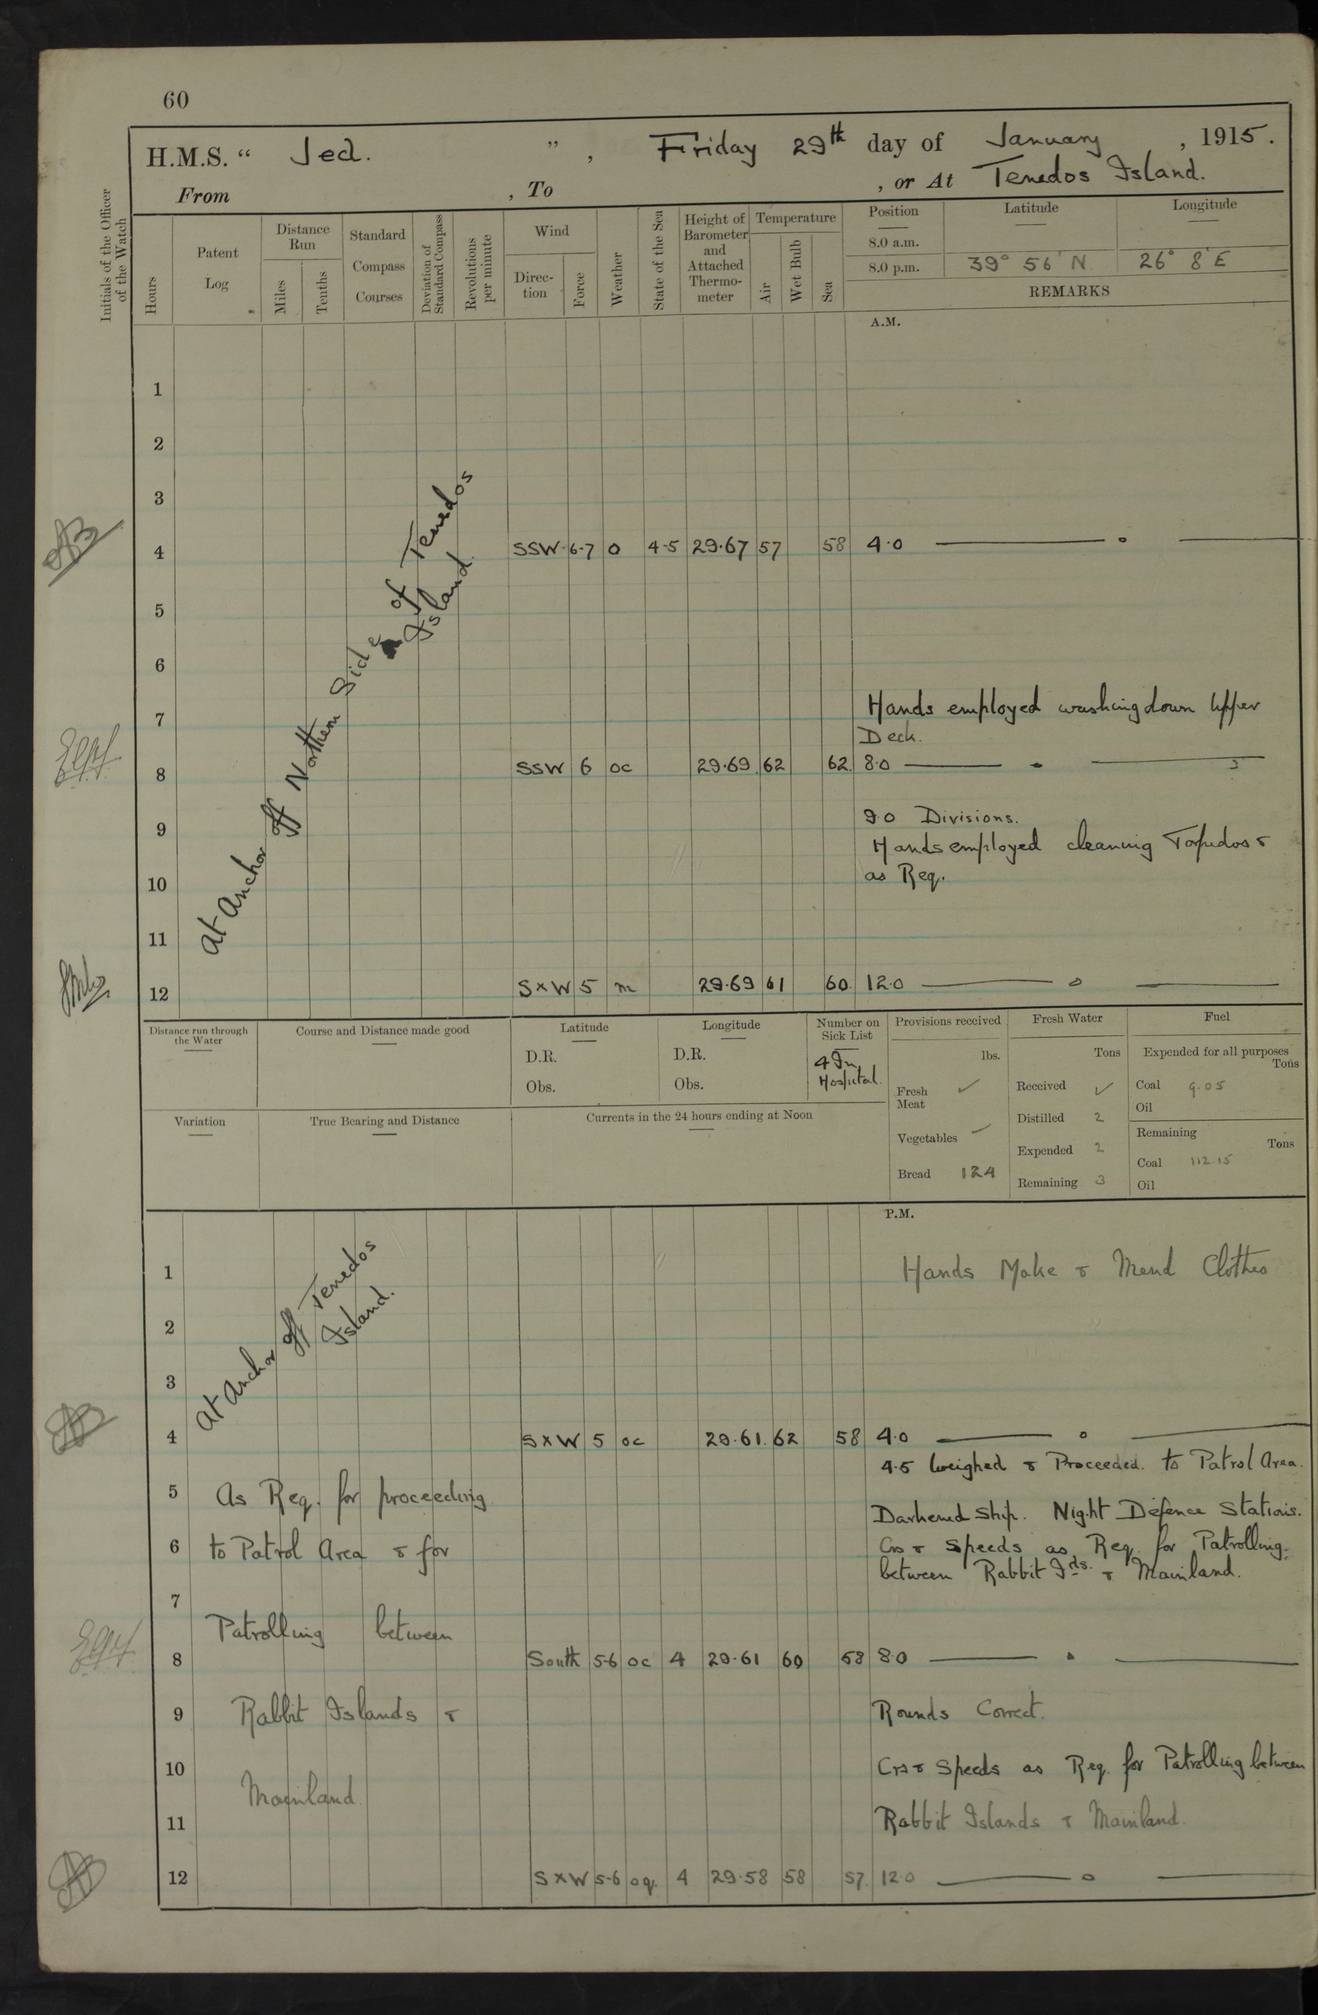 60
H.M.S. “ Jed. ” , Friday 29th day of January , 1915.
From , To , or At Tenedos Island.
Initials of the Officer of the Watch
Hours
Patent Log
Distance Run
Miles
Tenths
Standard Compass Courses
Deviation of Standard Compass
Revolutions per minute
Wind
Direction
Force
Weather
State of the Sea
Height of Barometer and Attached Thermometer
Temperature
Air
Wet Bulb
Sea
Position Latitude Longitude
8.0 a.m.
8.0 p.m. 39° 56' N 26° 8' E
REMARKS
A.M.
1
2
3
4 SSW 6-7 o 4-5 29.67 57 58 4.0
5
6
At Anchor off Northern Side of Tenedos
Island.
7 Hands employed washing down Upper
Deck.
8 SSW 6 oc 29.69 62 62 8.0
9 9.0 Divisions.
Hands employed cleaning Torpedos &
10 as Req.
11
12 S x W 5 m 29.69 61 60 12.0
Distance run through the Water
Course and Distance made good
Latitude
D.R.
Obs.
Longitude
D.R.
Obs.
Number on Sick List
4 In
Hospital.
Provisions received
lbs.
Fresh Meat ✓
Vegetables
Bread 124
Fresh Water
Tons
Received ✓
Distilled 2
Expended 2
Remaining 3
Fuel
Expended for all purposes
Tons
Coal 9.05
Oil
Remaining
Tons
Coal 112.15
Oil
Variation
True Bearing and Distance
Currents in the 24 hours ending at Noon
P.M.
1 Hands Make & Mend Clothes
2
3
At Anchor off Tenedos
Island.
4 S x W 5 oc 29.61 62 58 4.0
4.5 Weighed & Proceeded to Patrol Area.
5 As Req. for proceeding
Darkened Ship. Night Defence Stations.
6 to Patrol Area & for Crs & Speeds as Req. for Patrolling
between Rabbit Ids. & Mainland.
7 Patrolling between
8 South 5-6 oc 4 29.61 60 58 8.0
9 Rabbit Islands & Rounds Correct.
10 Crs & Speeds as Req. for Patrolling between
Mainland
11 Rabbit Islands & Mainland.
12 S x W 5-6 oq. 4 29.58 58 57 12.0